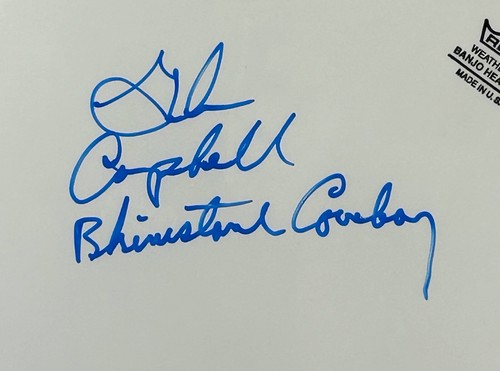 Glen
Campbell
Rhinestone Cowboy
WEATHE
BANJO HEA
MADE IN U.S